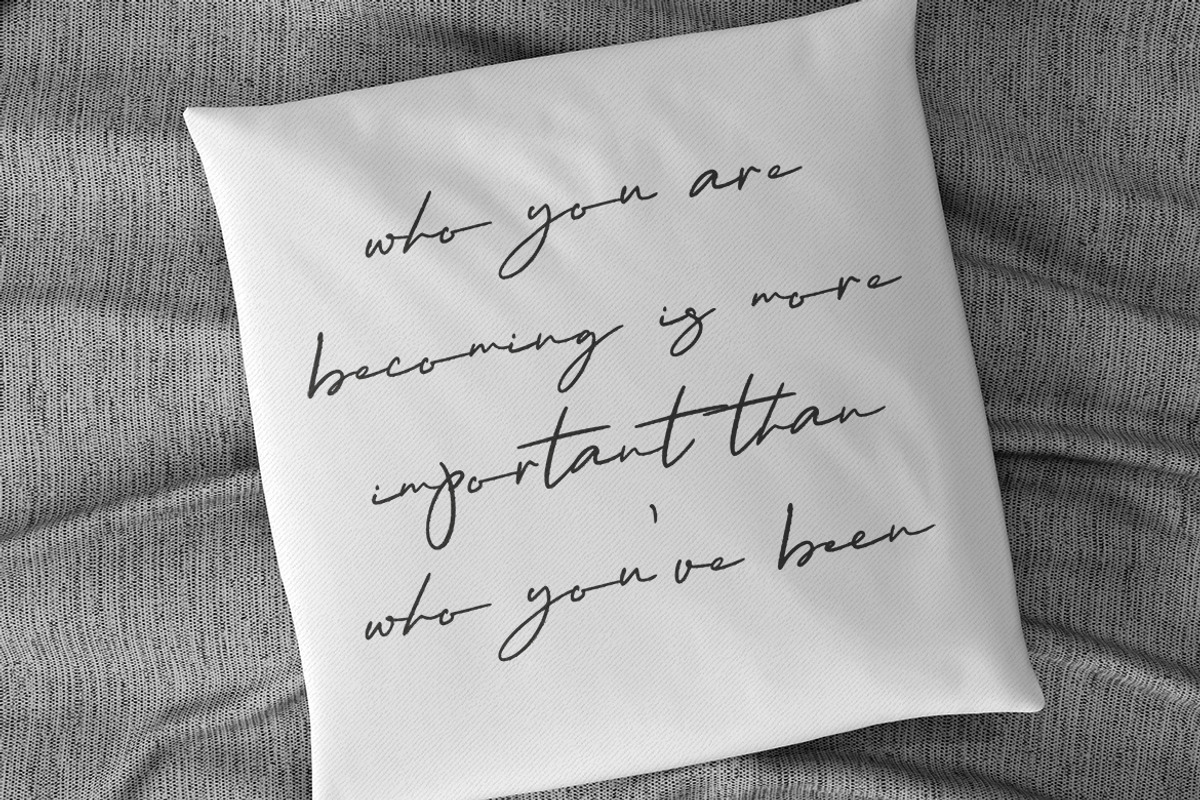 who you are
becoming is more
important than
who you've been